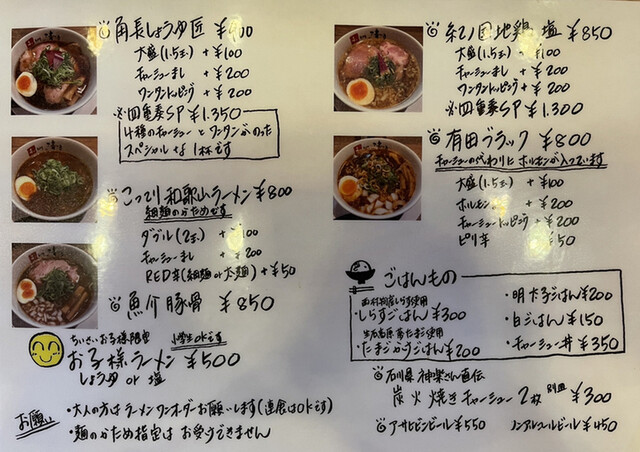 角長しょうゆ匠 ¥900
大盛(1.5玉) +¥100
チャーシューまし +¥200
ワンタントッピング +¥200
※四重奏SP ¥1,350
4種のチャーシューとワンタンがのった
スペシャルな1杯です
こってり和歌山ラーメン ¥800
細麺のかためです
ダブル(2玉) +¥200
チャーシューまし +¥200
RED辛(細麺or太麺) +¥50
魚介豚骨 ¥850
ちいさいお子様限定 小学生OKです
お子様ラーメン ¥500
しょうゆ or 塩
お願い
・大人の方はラーメンワンオーダーお願いします(連食はOKです)
・麺のかため指定はお受けできません
紀ノ国地鶏 塩 ¥850
大盛(1.5玉) +¥100
チャーシューまし +¥200
ワンタントッピング +¥200
※四重奏SP ¥1,300
有田ブラック ¥800
チャーシューの代わりにホルモンが入っています
大盛(1.5玉) +¥100
ホルモン +¥200
チャーシュートッピング +¥200
ピリ辛 ¥50
ごはんもの
しらす使用
・しらすごはん ¥300
たまご使用
・たまごかけごはん ¥200
・明太子ごはん ¥200
・白ごはん ¥150
・チャーシュー丼 ¥350
石川県 神楽さん直伝
炭火焼きチャーシュー2枚 別皿 ¥300
アサヒビンビール ¥550 ノンアルコールビール ¥450